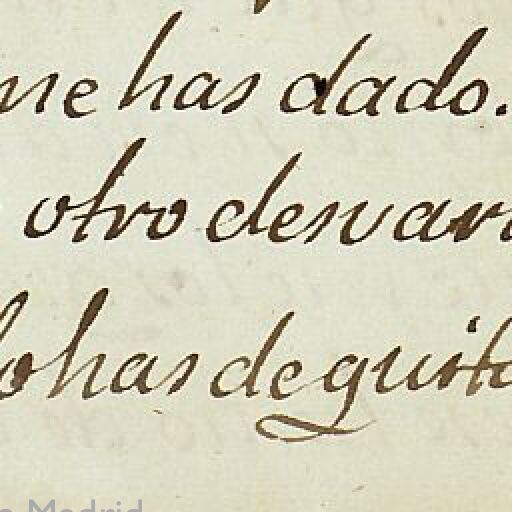 me has dado.
otro desvari
lo has de quita
Madrid